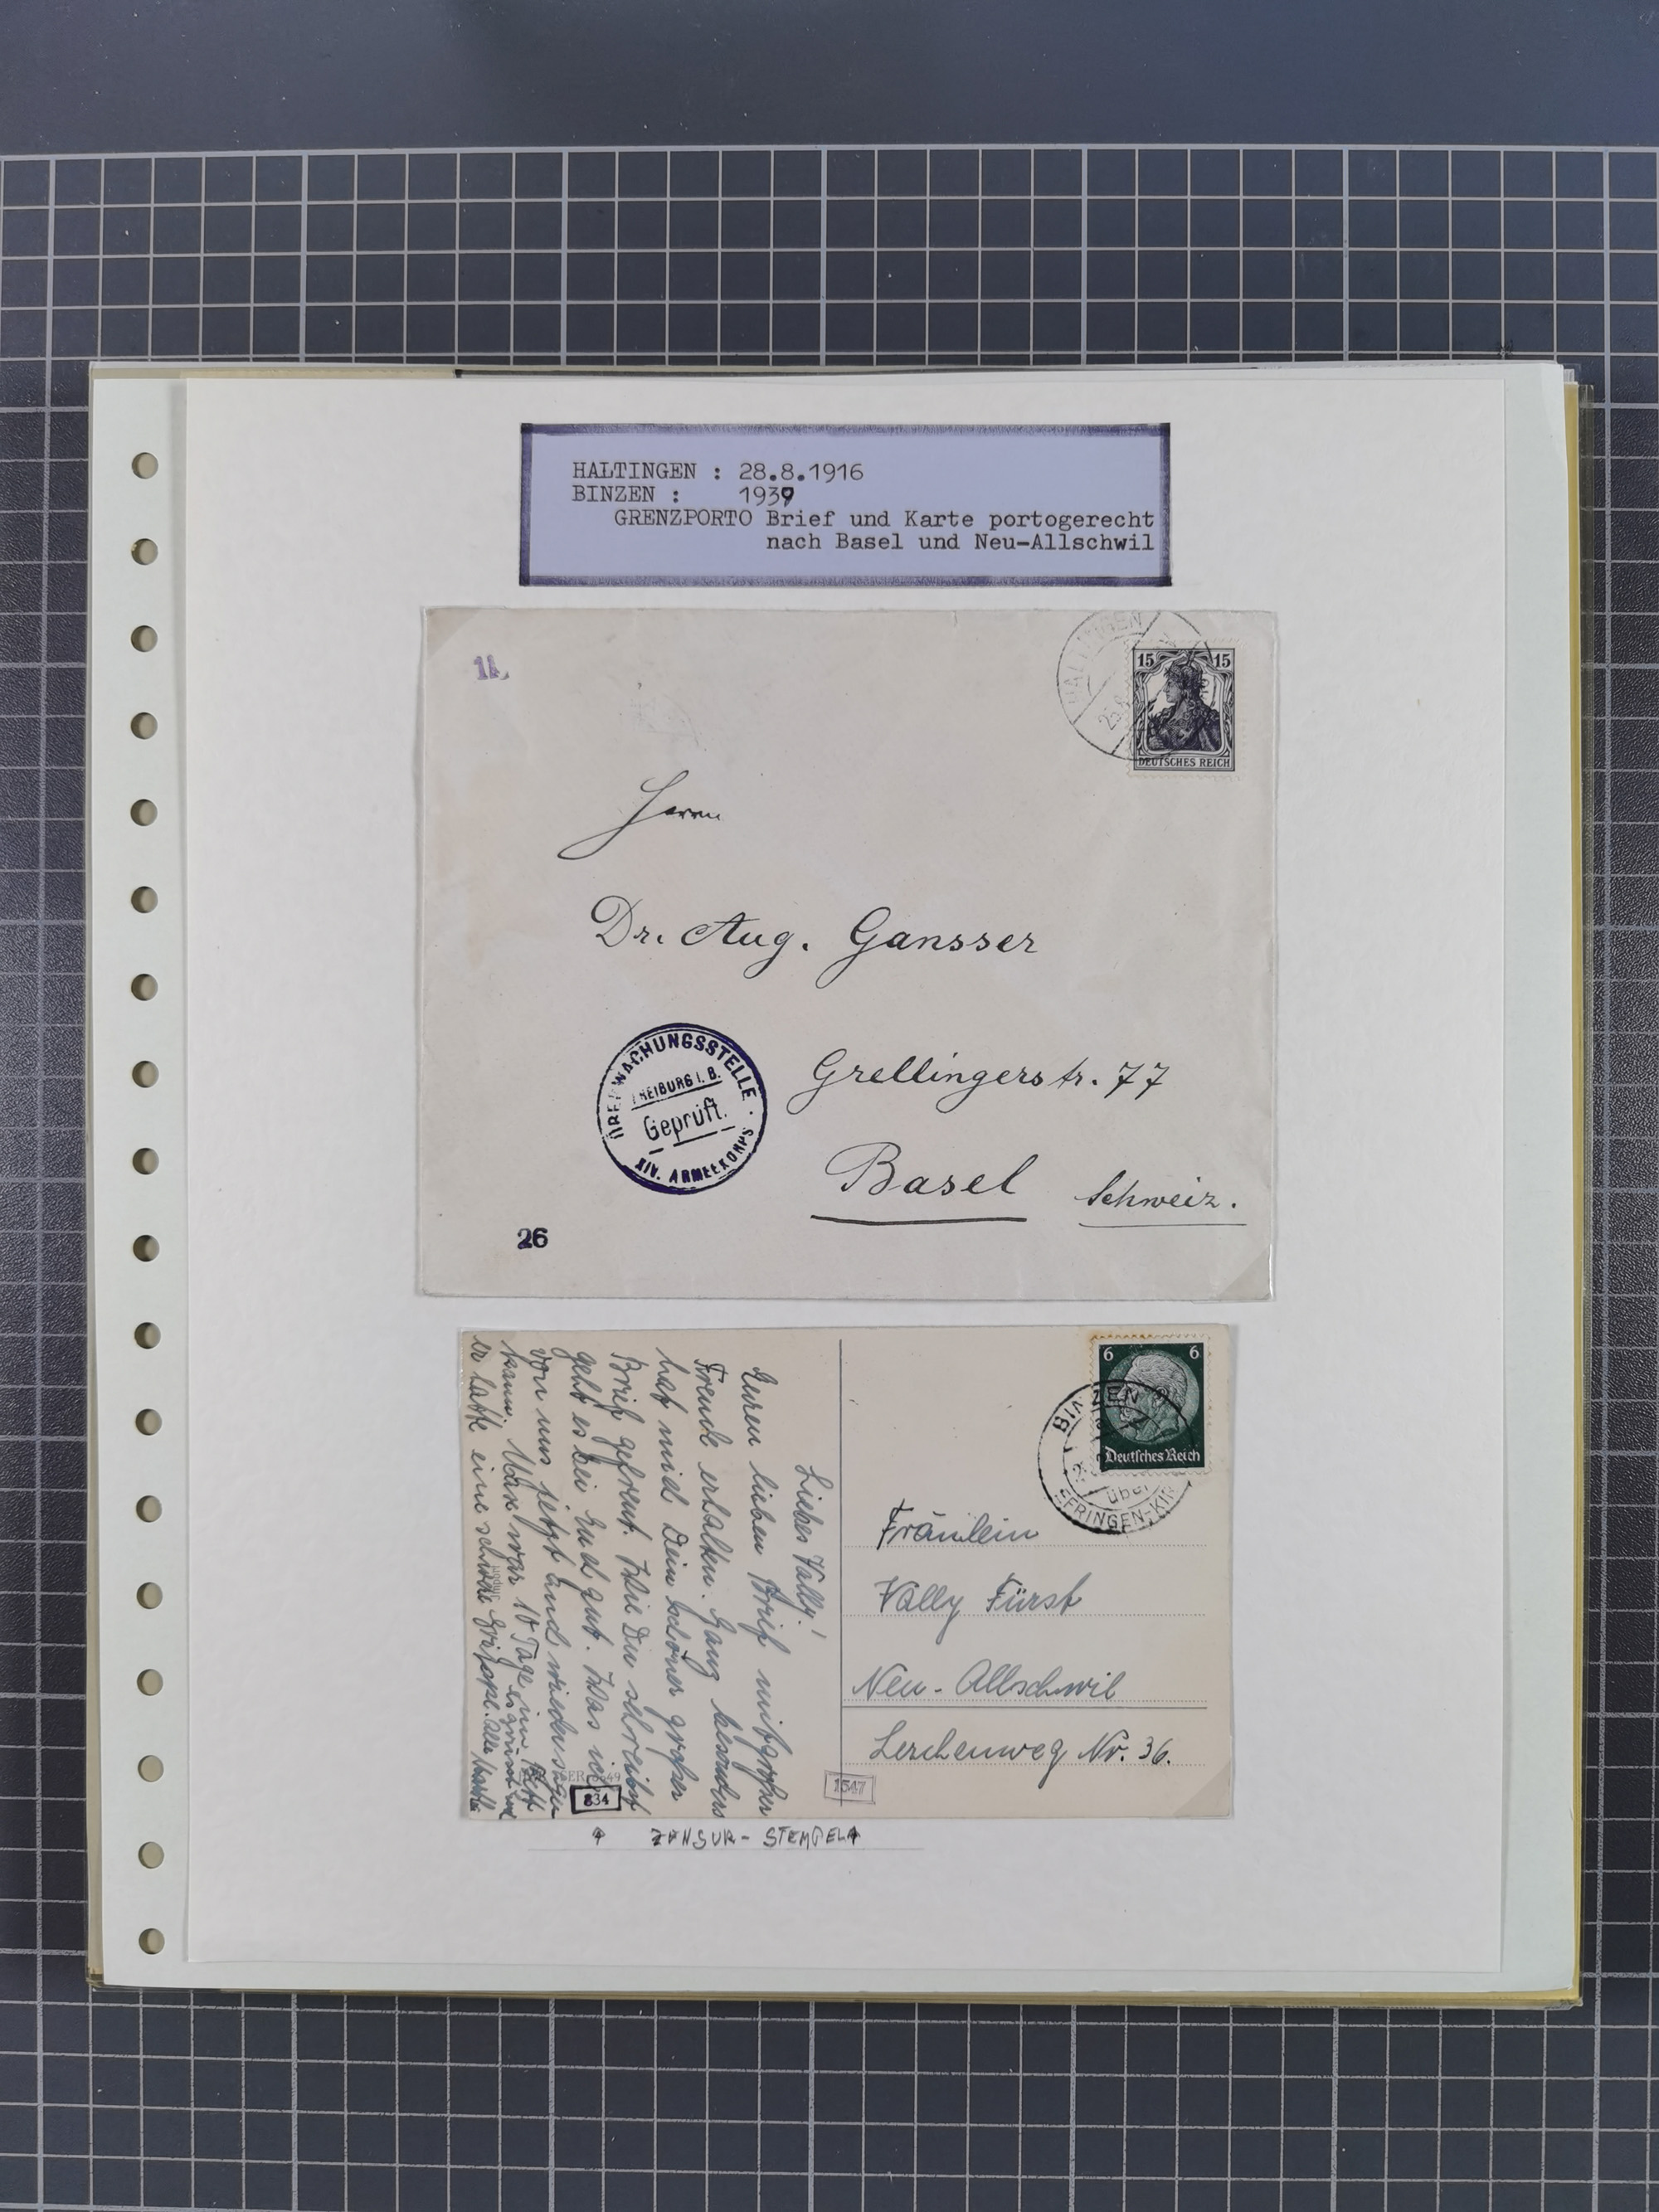 HALTINGEN : 28.8.1916
BINZEN : 1939
GRENZPORTO Brief und Karte portogerecht
nach Basel und Neu-Allschwil
HALTINGEN
15 15
DEUTSCHES REICH
Herrn
Dr. Aug. Gansser
Grellingerstr. 77
Basel Schweiz.
ÜBERWACHUNGSSTELLE
FREIBURG I. B.
Geprüft.
XIV. ARMEEKORPS
26
6 6
Deutsches Reich
BINZEN
über
EFRINGEN-KIR
Liebes Vally!
Euren lieben Brief mit großer
Freude erhalten. Ganz besonders
hat mich Dein schöner großer
Brief gefreut. Wie Du schreibst
geht es bei Euch gut. Was ich
von uns jetzt auch wieder sagen
kann. Max war 10 Tage im Bett
er hatte eine schwere Grippe.
Fräulein
Vally Fürst
Neu-Allschwil
Lerchenweg Nr. 36.
834
1547
ZENSUR-STEMPEL